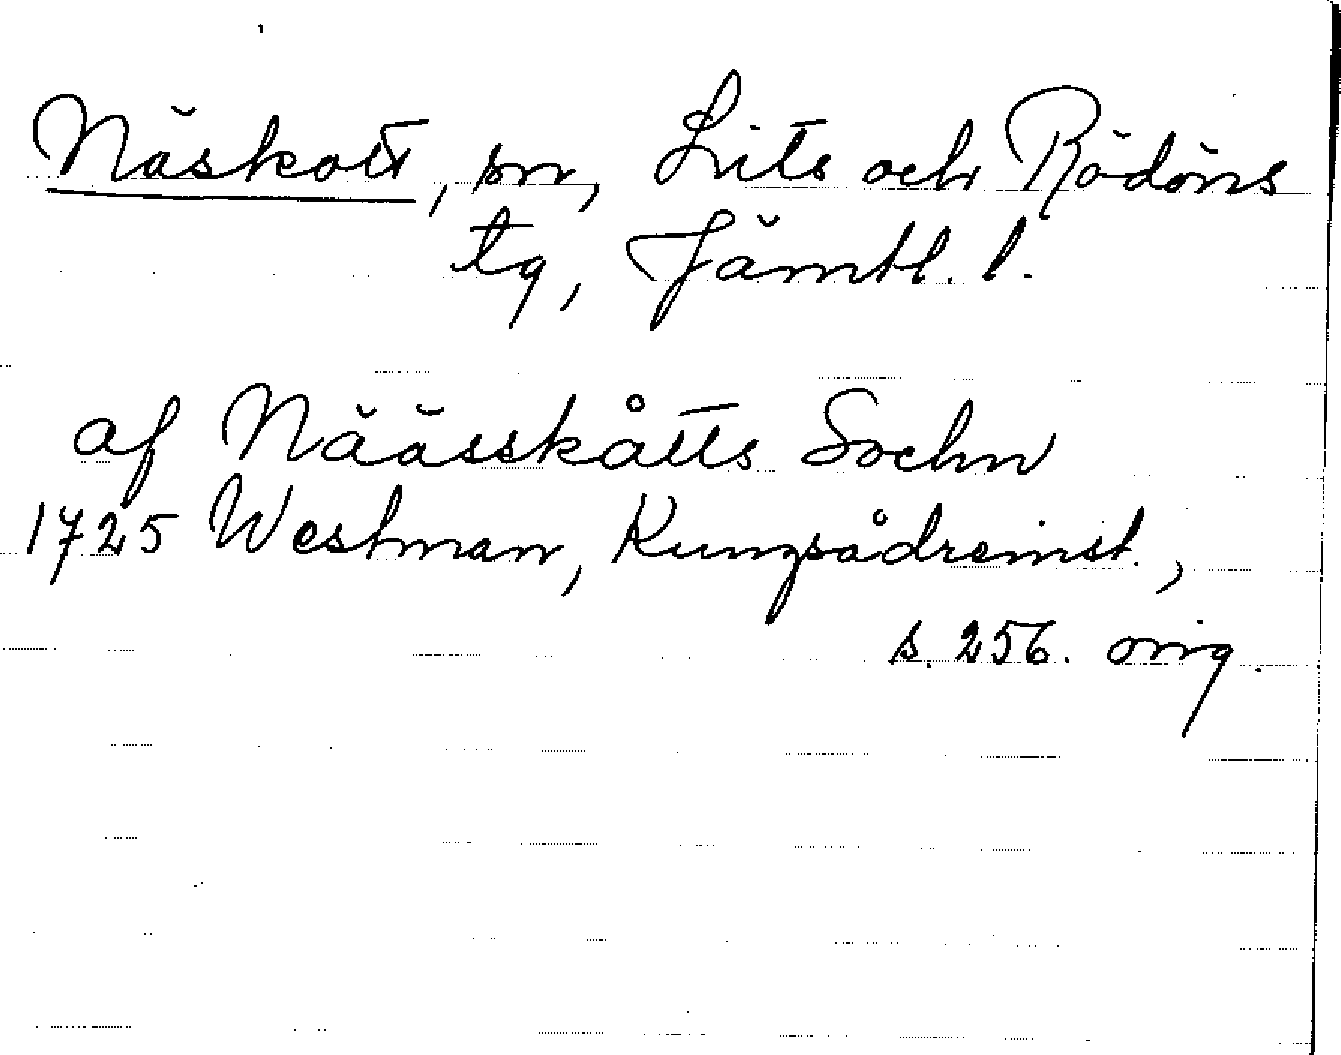 Näskott, sn, Lits och Rödöns
tg, Jämtl. l.
af Näässkåtts Sochn
1725 Westman, Kungsådreinst.,
s. 256. orig.